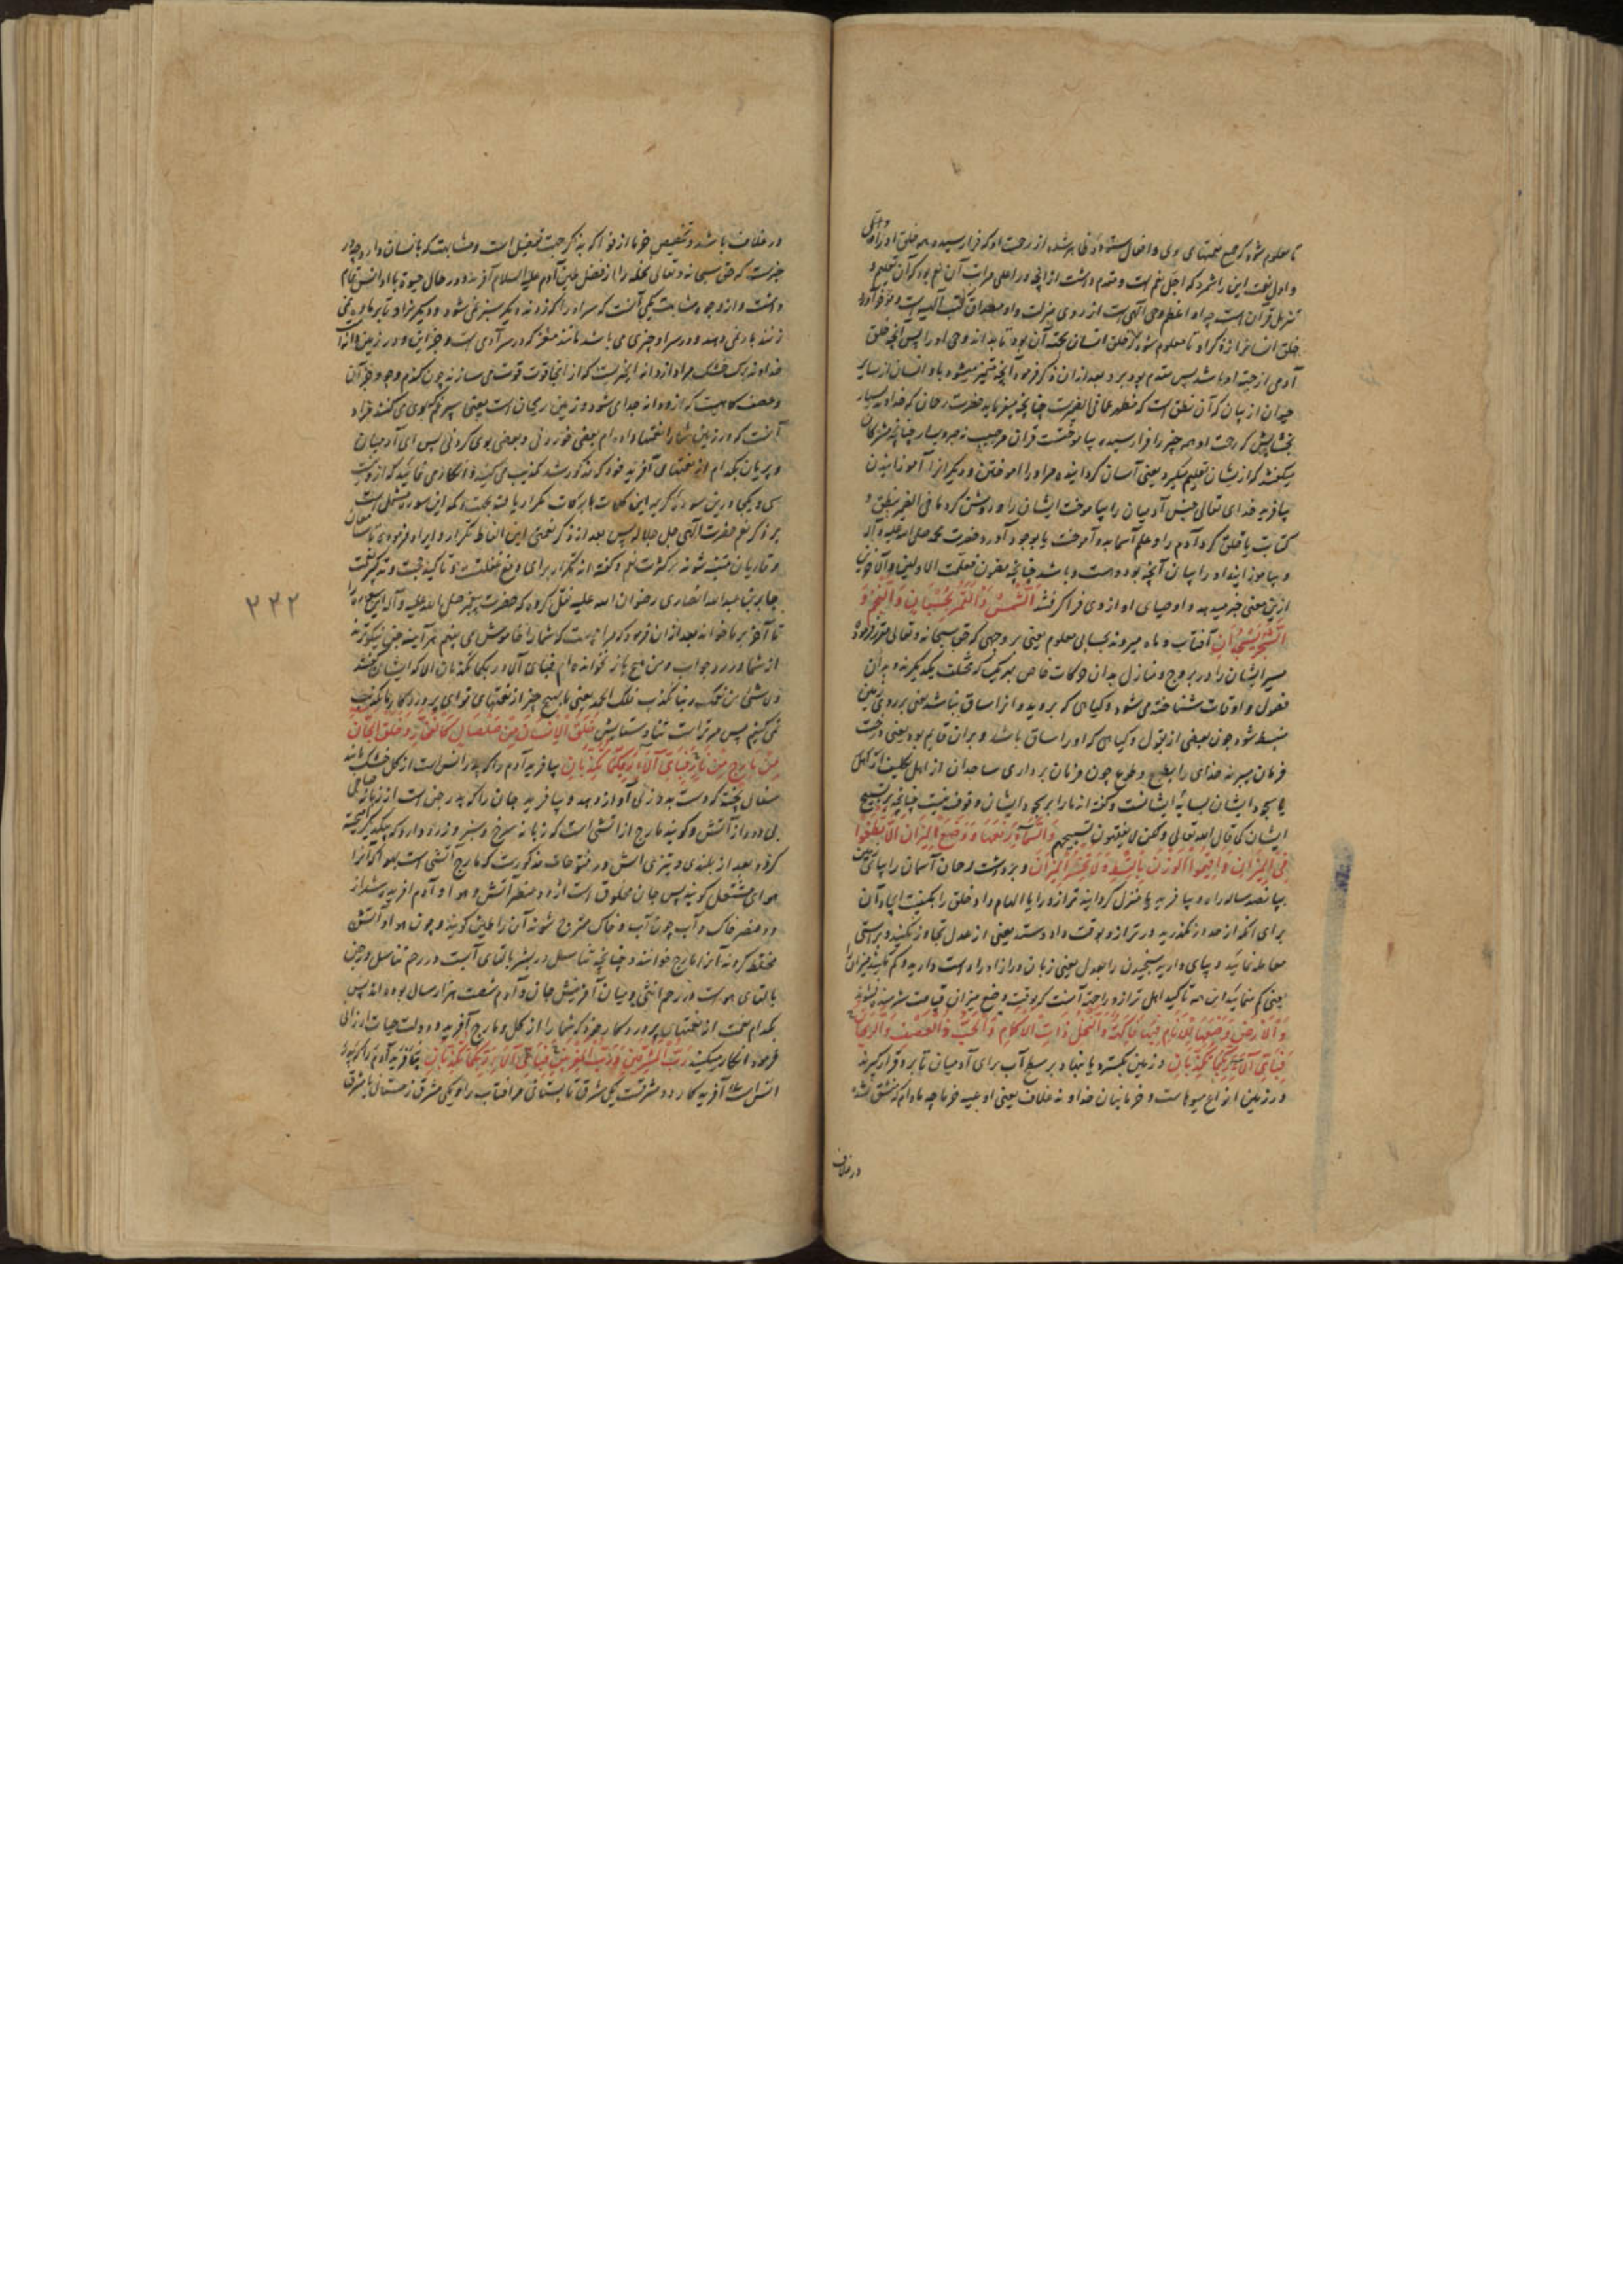 تا معلوم شود که جمیع نعمتهای
و اول نعمت این را شمرد که اجل نعم است و مقدم داشت از آنچه در اعلی مراتب آن نعم بود که آن تعلیم و
تنزیل قرآن است چه او اعظم وحی الهی است از روی منزلت و او مصداق کتب الهیه است
خلق انسان تا معلوم شود که خلق انسان بجهة آن بود تا بداند وحی او را پس آنچه خلق
آدمی از جهته او باشد پس مقدم بود برو بعد از ان ذکر فرمود آنچه متمیز میشود باو انسان از سایر
حیوان از بیان که آن نطق است که مظهر عما فی الضمیر است چنانچه میفرماید حضرت رحمان که خداوند بسیار
بخشایش که رحمت او همه چیز را فرا رسیده بیاموخت قرآن
میگفتند که از بشان تعلیم میگیرد یعنی آسان گردانیده مر او را آموختن و دیگرانرا آموزانیدن
بیافرید خدای تعالی جنس آدمیان را بیاموخت ایشان را و روشن کرد ما فی الضمیر بنطق و
کتابت یا خلق کرد آدم را و علم اسما بدو آموخت یا بوجود آورد حضرت محمد صلی الله علیه و آله
و بیاموزانید او را بیان آنچه بود و هست و باشد چنانچه مضمون فعلمت الاولین والآخرین
ازین معنی خبر میدهد و اوصیای او از وی فرا گرفتند اَلشَّمْسُ وَالْقَمَرُ بِحُسْبَانٍ وَالنَّجْمُ وَ
الشَّجَرُ یَسْجُدَانِ آفتاب و ماه میروند بحسابی معلوم یعنی بر وجهی که حق سبحانه و تعالی مقرر فرموده
سیر ایشان را در بروج و منازل بدان حرکات خاص هر یک که مختلف یکدیگرند و بدان
فصول و اوقات شناخته می‌شود و گیاهی که بروید و او را ساق نباشد یعنی بر روی زمین
منبسط شود چون بعضی از بقول و گیاهی که او را ساق باشد و بران قایم بود یعنی درخت
فرمان میبرند خدای را بطبع و طوع چون فرمان برداری ساجدان از اهل تکلیف
یا سجود ایشان بسایهٔ ایشانست و گفته اند ما را بر سجود ایشان وقوف نیست چنانچه بر تسبیح
ایشان کما قال الله تعالی ولکن لا تفقهون تسبیحهم وَالسَّمَاءَ رَفَعَهَا وَوَضَعَ الْمِیزَانَ اَلَّا تَطْغَوْا
فِی الْمِیزَانِ وَاَقِیمُوا الْوَزْنَ بِالْقِسْطِ وَلَا تُخْسِرُوا الْمِیزَانَ و برداشت رحمان آسمان را
بپانصد ساله راه و بیافرید یا منزل گردانید ترازو را یا الهام داد خلق را بکیفیت ایجاد آن
برای آنکه از حد اند نگذرید در ترازو بوقت داد و ستد یعنی از عدل تجاوز نکنید و براستی
معامله نمائید و بپای دارید سنجیدن را بعدل یعنی زبان ترازو را راست دارید و کم نکنید میزان را
یعنی کم منمائید این همه تأکید اهل ترازو را جهة آنست که بوقت وضع میزان قیامت شرمنده نشوند
وَالْاَرْضَ وَضَعَهَا لِلْاَنَامِ فِیهَا فَاکِهَةٌ وَالنَّخْلُ ذَاتُ الْاَکْمَامِ وَالْحَبُّ ذُو الْعَصْفِ وَالرَّیْحَانُ
فَبِاَیِّ آلَاءِ رَبِّکُمَا تُکَذِّبَانِ و زمین بگسترد یا بنهاد بر سطح آب برای آدمیان تا برو قرار گیرند
در زمین انواع میوهاست و خرمابنان خداوند غلاف یعنی اوعیهٔ خرما چه مادام که منشق نشده
در غلاف
در غلاف باشد و تخصیص خرما از فواکه بذکر جهت تفضیل است و مشابهت که بانسان دارد چه در
خبرست که حق سبحانه و تعالی نخله را از فضل طین آدم علیه السلام آفریده و در حال حیوة با او انس تمام
داشت و از وجوه مشابهت یکی آنست که سر او را که زدند دیگر سبز نمی شود
زنند بار نمی دهد و در سر او چیزی می باشد مانند مغز که در سر آدمی است و جز این و در زمین دانها
خداوند برگ خشک
و عصف کاهیست که از دانه جدا می شود و در زمین ریحان است یعنی سپرغم که بوی می کنند مراد
آنست که در زمین شما را نعمتها داده ام بعضی خوردنی و بعضی بوی کردنی پس ای آدمیان
و پریان بکدام از نعمتهای آفریدگار خود که مذکور شد تکذیب می کنید و انکار می نمائید
سی و یکجا درین سوره کریمه این کلمات با برکات تکرار یافته بجهت آنکه این سوره مشتمل است
بر ذکر نعم حضرت الهی جل جلاله پس بعد از ذکر نعمتی این الفاظ تکرار و ایراد فرموده تا سامعان
و قاریان متنبه شوند بر کثرت نعم و گفته اند تکرار برای دفع غفلت و تاکید حجت و تذکیر نعمت
جابر بن عبدالله انصاری رضوان الله علیه نقل کرده که حضرت پیغمبر صلی الله علیه و آله این سوره را
تا آخر بر ما خواند بعد از ان فرمود که مرا چیست که شما را خاموش می بینم هر آینه جن نیکوترند
از شما در رد جواب و من هیچ بار نخوانده ام فبای آلاء ربکما تکذبان الا که ایشان گفتند
و لا بشئ من نعمک ربنا نکذب فلک الحمد یعنی ما بهیچ چیز از نعمتهای تو ای پروردگار ما تکذیب
نمی کنیم پس مر تراست ثنا و ستایش خَلَقَ الْاِنْسَانَ مِنْ صَلْصَالٍ کَالْفَخَّارِ وَخَلَقَ الْجَانَّ
مِنْ مَارِجٍ مِنْ نَارٍ فَبِاَیِّ آلَاءِ رَبِّکُمَا تُکَذِّبَانِ بیافرید آدم را که پدر انس است از گل خشک مانند
سفال پخته که دست بدو زنی آواز دهد و بیافرید جان را که پدر جن است از زبانهٔ صافی
بی دود از آتش و گویند مارج از آتشی است که زبانه سرخ و سبز و زرد دارد که بیکدیگر آمیخته
گردد بعد از بلندی و تیزی آتش و در فتوحات مذکورست که مارج آتشی است
هوای مشتعل گویند پس جان مخلوق است از دو عنصر آتش و هوا و آدم آفریده شد از
دو عنصر خاک و آب چون آب و خاک ممتزج شوند آن را طین گویند و چون هوا و آتش
مختلط گردند آنرا مارج خوانند و چنانچه تناسل در بشر بالقای آبست در رحم تناسل در جن
بالقای هواست در رحم انثی و میان آفرینش جان و آدم شصت هزار سال بوده اند پس
بکدام نعمت از نعمتهای پروردگار خود که شما را از گل و مارج آفرید و دولت حیات ارزانی
فرمود انکار میکنید رَبُّ الْمَشْرِقَیْنِ وَرَبُّ الْمَغْرِبَیْنِ فَبِاَیِّ آلَاءِ رَبِّکُمَا تُکَذِّبَانِ
آفریدگار دو مشرقست یکی مشرق تابستانی مر آفتاب را و یکی مشرق زمستانی
۲۴۲